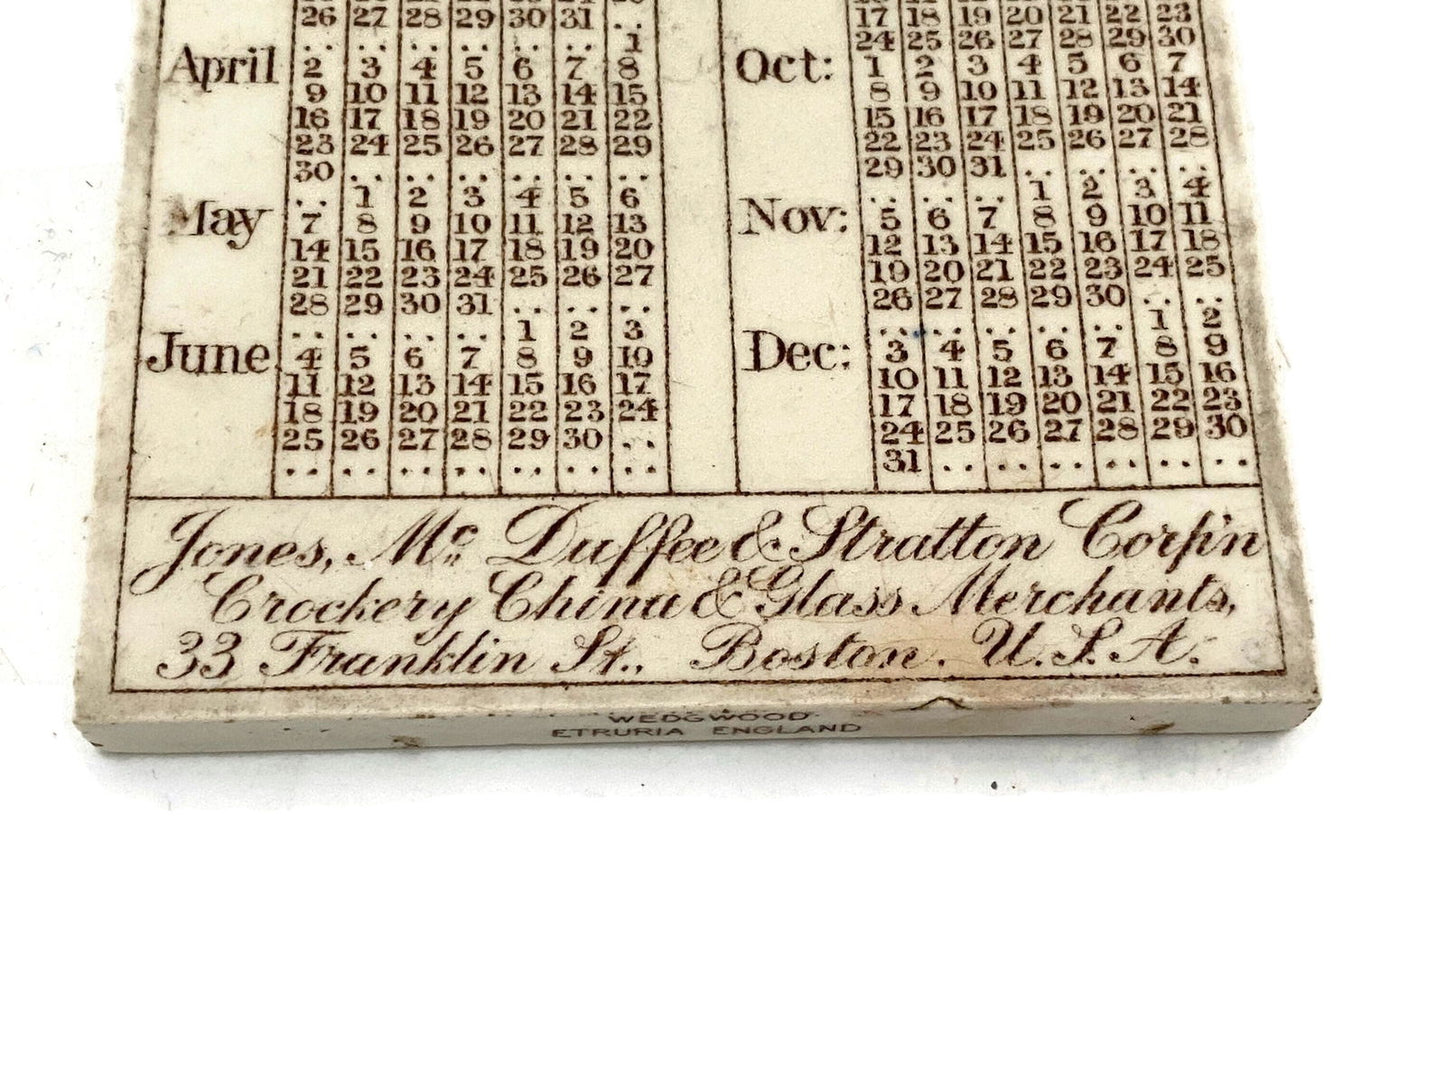 26 27 28 29 30 31 ..
April .. .. .. .. .. .. 1
2 3 4 5 6 7 8
9 10 11 12 13 14 15
16 17 18 19 20 21 22
23 24 25 26 27 28 29
30 .. .. .. .. .. ..
May .. 1 2 3 4 5 6
7 8 9 10 11 12 13
14 15 16 17 18 19 20
21 22 23 24 25 26 27
28 29 30 31 .. .. ..
June .. .. .. .. 1 2 3
4 5 6 7 8 9 10
11 12 13 14 15 16 17
18 19 20 21 22 23 24
25 26 27 28 29 30 ..
.. .. .. .. .. .. ..
17 18 19 20 21 22 23
24 25 26 27 28 29 30
Oct: 1 2 3 4 5 6 7
8 9 10 11 12 13 14
15 16 17 18 19 20 21
22 23 24 25 26 27 28
29 30 31 .. .. .. ..
Nov: .. .. .. 1 2 3 4
5 6 7 8 9 10 11
12 13 14 15 16 17 18
19 20 21 22 23 24 25
26 27 28 29 30 .. ..
Dec: .. .. .. .. .. 1 2
3 4 5 6 7 8 9
10 11 12 13 14 15 16
17 18 19 20 21 22 23
24 25 26 27 28 29 30
31 .. .. .. .. .. ..
Jones, Mc Duffee & Stratton Corp'n
Crockery China & Glass Merchants,
33 Franklin St., Boston. U.S.A.
WEDGWOOD
ETRURIA ENGLAND